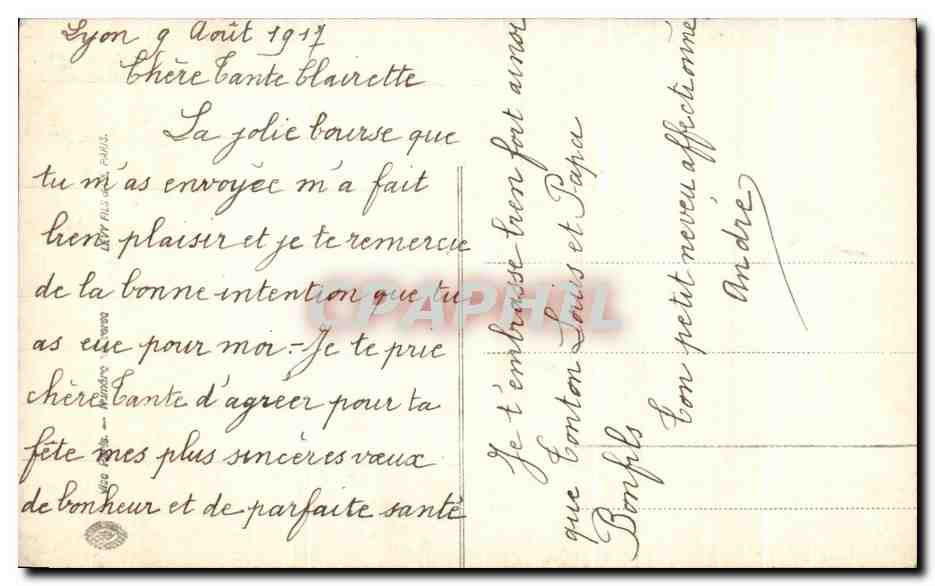 Lyon 9 Août 1917
Chère Tante Clairette
La jolie bourse que
tu m'as envoyée m'a fait
bien plaisir et je te remercie
de la bonne intention que tu
as eue pour moi.- Je te prie
chère Tante d'agréer pour ta
fête mes plus sincères vœux
de bonheur et de parfaite santé
Je t'embrasse bien fort ainsi
que Tonton Louis et Papa
Bonfils
Ton petit neveu affectionné
André
LEVY FILS PARIS.
CPAPHIL